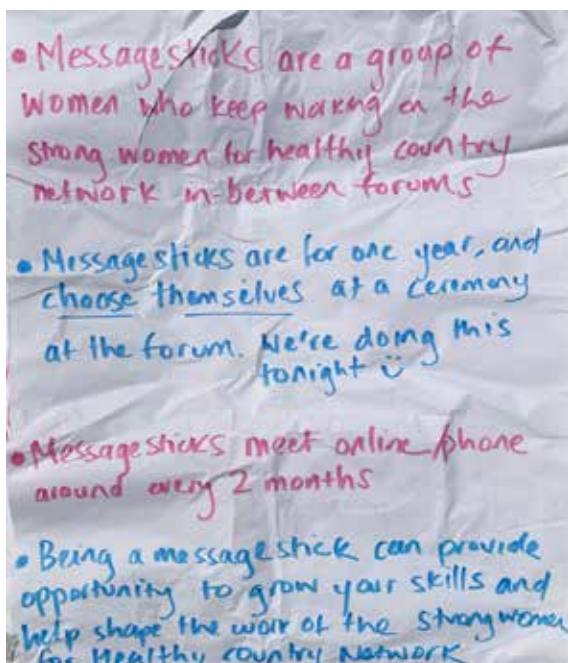 • Messagesticks are a group of
women who keep working on the
strong women for healthy country
network in-between forums
• Messagesticks are for one year, and
choose themselves at a ceremony
at the forum. We're doing this
tonight ü
• Messagesticks meet online/phone
around every 2 months
• Being a messagestick can provide
opportunity to grow your skills and
help shape the work of the strong women
for Healthy country Network